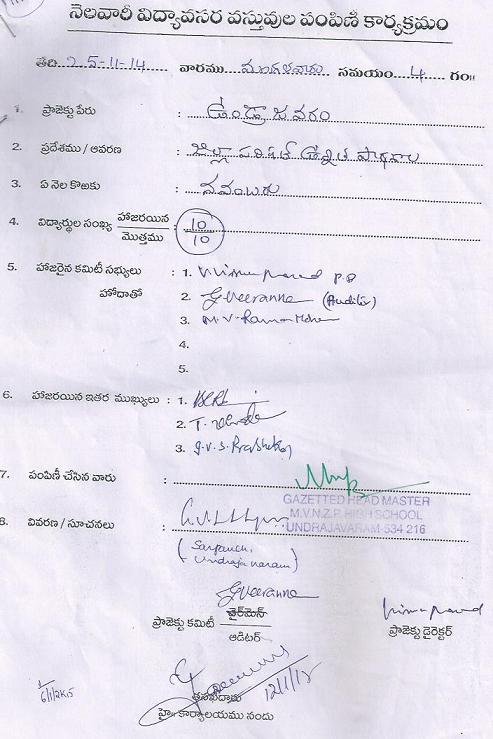 నెలవారీ విద్యావసర వస్తువుల పంపిణీ కార్యక్రమం
తేది 25-11-14 వారము మంగళవారం సమయం 4 గం॥
1. ప్రాజెక్టు పేరు : ఉండ్రాజవరం
2. ప్రదేశము / ఆవరణ : జిల్లా పరిషత్ ఉన్నత పాఠశాల
3. ఏ నెల కొఱకు : నవంబరు
4. విద్యార్థుల సంఖ్య హాజరయిన / మొత్తము : 10 / 10
5. హాజరైన కమిటీ సభ్యులు : 1. P.D
హోదాతో 2. G Veeranna (Auditor)
3. M.V. Rama Mohan
4.
5.
6. హాజరయిన ఇతర ముఖ్యులు : 1.
2. T.
3. G.V.S.
7. పంపిణీ చేసిన వారు :
GAZETTED HEAD MASTER
M.V.N.Z.P. HIGH SCHOOL
UNDRAJAVARAM-534 216
8. వివరణ / సూచనలు :
(Sarpanch,
Undrajavaram)
G Veeranna
ప్రాజెక్టు కమిటీ చైర్‌మెన్
ఆడిటర్
ప్రాజెక్టు డైరెక్టర్
12/1/15
6/1/2K15
హై కార్యాలయము నందు